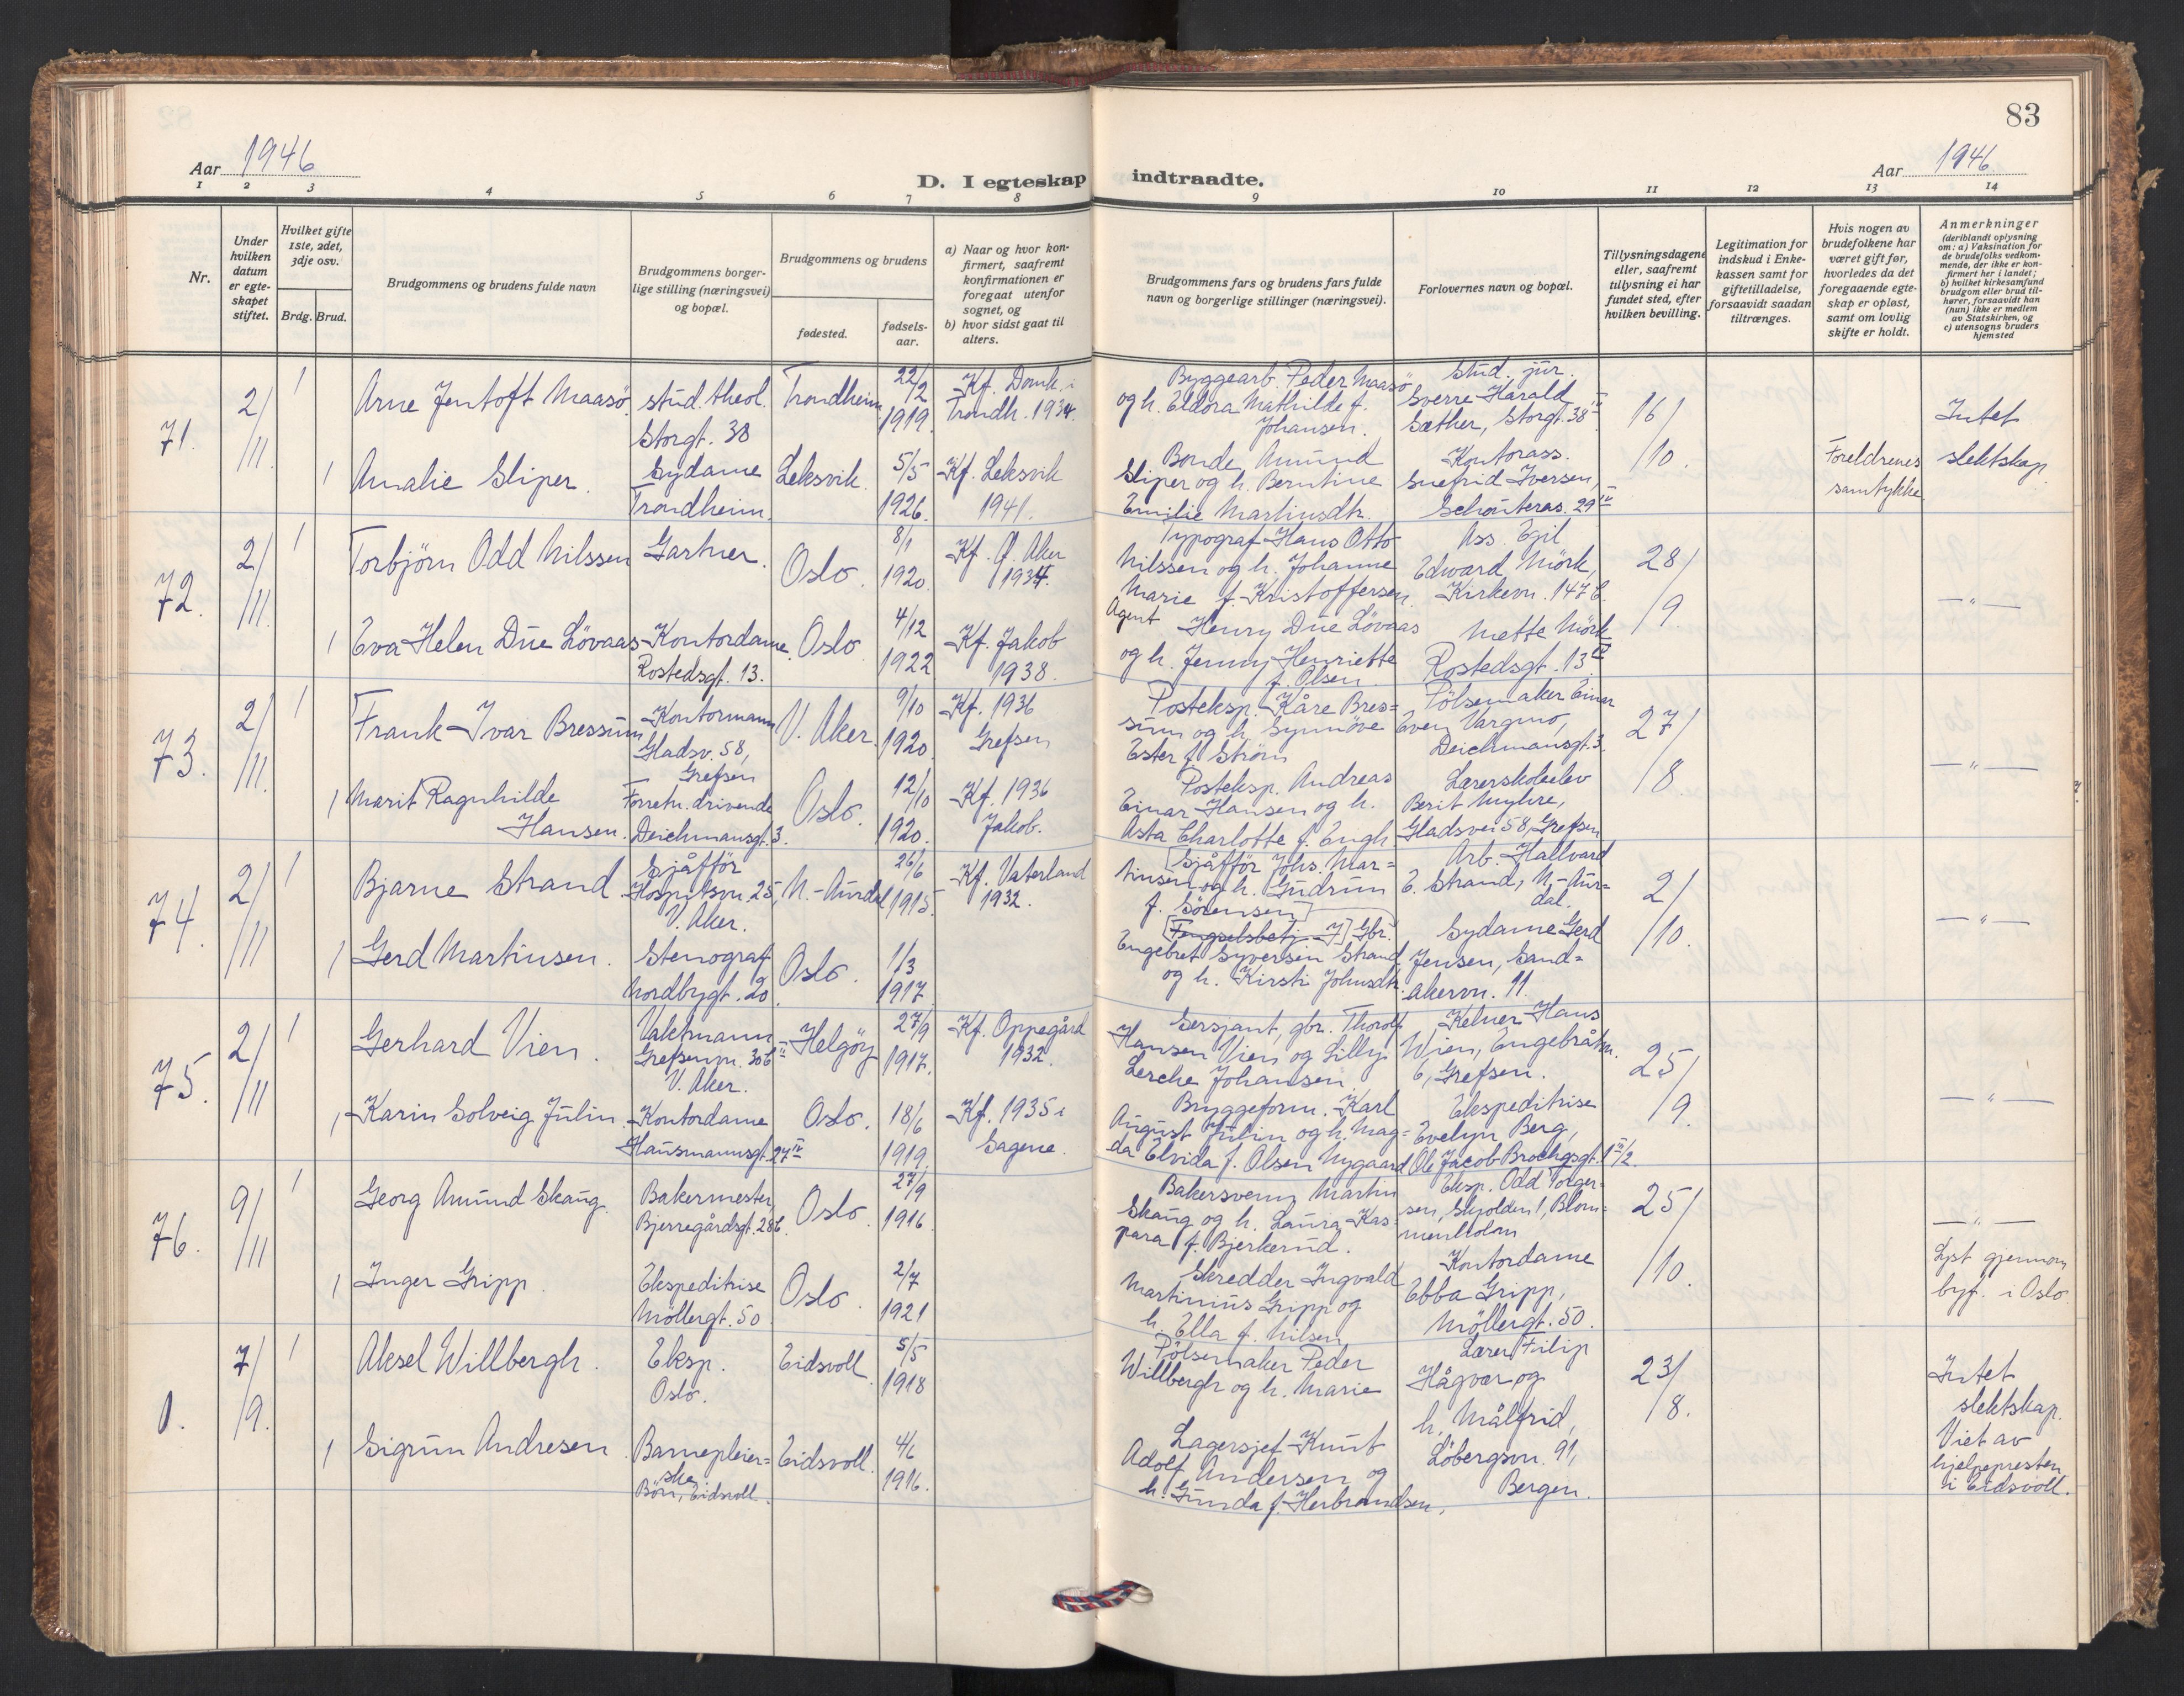 83
Aar 1946
D. I egteskap indtraadte.
Aar 1946
1 2 3 4 5 6 7 8 9 10 11 12 13 14
Nr.
Under hvilken datum er egte-skapet stiftet.
Hvilket gifte 1ste, 2det, 3dje osv.
Brdg. Brud.
Brudgommens og brudens fulde navn
Brudgommens borger-
lige stilling (næringsvei)
og bopæl.
Brudgommens og brudens
fødested.
fødsels-
aar.
a) Naar og hvor kon-
firmert, saafremt
konfirmationen er
foregaat utenfor
sognet, og
b) hvor sidst gaat til
alters.
Brudgommens fars og brudens fars fulde
navn og borgerlige stillinger (næringsvei).
Forlovernes navn og bopæl.
Tillysningsdagene
eller, saafremt
tillysning ei har
fundet sted, efter
hvilken bevilling.
Legitimation for
indskud i Enke-
kassen samt for
giftetilladelse,
forsaavidt saadan
tiltrænges.
Hvis nogen av
brudefolkene har
været gift før,
hvorledes da det
foregaaende egte-
skap er opløst,
samt om lovlig
skifte er holdt.
Anmerkninger
(deriblandt oplysning
om: a) Vaksination for
de brudefolks vedkom-
mende, der ikke er kon-
firmert her i landet;
b) hvilket kirkesamfund
brudgom eller brud til-
hører, forsaavidt han
(hun) ikke er medlem
av Statskirken, og
c) utensogns bruders
hjemsted
71.
2/11.
1
Arne Jentoft Maasö
stud. theol.
Storgt. 38
Trondheim
22/2
1919.
Kf. Domk. i
Trondh. 1934.
Byggearb. Peder Maasö
og h. Eldora Mathilde f.
Johansen.
Stud. jur.
Sverre Harald
Sæther, Storgt. 38 IV
16/10.
Intet
slektskap.
1
Amalie Sliper.
Sydame
Trondheim.
Leksvik
5/5
1926.
Kf. Leksvik
1941.
Bonde Amund
Sliper og h. Berntine
Emilie Martinsdtr.
Kontorass.
Snefrid Iversen,
Schönteras. 29 IV
Foreldrenes
samtykke
72.
2/11.
1
Torbjörn Odd Nilssen
Gartner.
Oslo.
8/1
1920.
Kf. Ö. Aker
1934.
Typograf Hans Otto
Nilssen og h. Johanne
Marie f. Kristoffersen.
Ass. Egil
Edward Mörk,
Kirkevn. 147 C.
28/9.
— " —
1
Eva Helen Due Lövaas
Kontordame.
Rostedsgt. 13.
Oslo
4/12
1922
Kf. Jakob
1938.
Agent
Henry Due Lövaas
og h. Jenny Henriette
f. Olsen
Mette Mörk
Rostedsgt. 13
73.
2/11.
1
Frank Ivar Bressum
Kontormann
Gladsv. 58,
Grefsen
V. Aker.
9/10
1920.
Kf. 1936
Grefsen
Posteksp. Kåre Bres=
sum og h. Synnöve
Ester f. Ström
Pölsemaker Einar
Even Vargmo,
Deichmansgt. 3.
27/8.
— " —
1
Marit Ragnhilde
Hansen.
Forretn. drivende
Deichmansgt. 3.
Oslo.
12/10
1920.
Kf. 1936
Jakob.
Posteksp. Andreas
Einar Hansen og h.
Asta Charlotte f. Engh
Lærerskoleelev
Berit Myhre,
Gladsvei 58, Grefsen
74.
2/11
1
Bjarne Strand
Sjåfför
Hospitsvn. 25,
V. Aker.
N.-Aurdal
26/6
1915.
Kf. Vaterland
1932.
[Sjåfför Johs. Mar=
tinsen og h. Gudrun
f. Sörensen]
Arb. Hallvard
E. Strand, N.-Aur=
dal.
2/10.
— " —
1
Gerd Martinsen.
Stenograf
Nordbygt. 20.
Oslo.
1/3
1917.
[Fengselsbetj. J] Gbr.
Engebret Syversen Strand
og h. Kirsti Johnsdtr.
Sydame Gerd
Jensen, Sand=
akervn. 11.
75.
2/11
1
Gerhard Vien.
Vaktmann
Grefsenvn. 30 b II
V. Aker.
Helgöy
27/9
1917.
Kf. Oppegård
1932.
Sersjant, gbr. Thorolf
Hansen Vien og Lilly
Lerche Johansen.
Kelner Hans
Wien, Engebråtvn.
6, Grefsen.
25/9.
— " —
1
Karin Solveig Julin.
Kontordame
Hausmannsgt. 27 IV
Oslo.
18/6
1919.
Kf. 1935 i
Sagene.
Bryggeform. Karl
August Julin og h. Mag=
da Elvida f. Olsen Nygaard
Ekspeditrise
Evelyn Berg,
Ole Jacob Brochsgt. 1 III/2.
76.
9/11
1
Georg Amund Skaug.
Bakermester,
Bjerregårdsgt. 28 b.
Oslo.
27/9
1916.
Bakersvenn Martin
Skaug og h. Laura Kas=
para f. Bjerkerud.
Eksp. Odd Torger=
sen, Skjolden 1, Blom=
menholm
25/10.
— " —
Lyst gjennom
byf. i Oslo.
1
Inger Gripp.
Ekspeditrise
Möllergt. 50
Oslo.
2/7
1921
Skredder Ingvald
Martinius Gripp og
h. Ella f. Nilsen
Kontordame
Ebba Gripp,
Möllergt. 50.
0.
7/9.
1
Aksel Willbergh.
Eksp.
Oslo.
Eidsvoll
5/5
1918
Pölsemaker Peder
Willbergh og h. Marie
Lærer Filip
Hågvar og
h. Målfrid,
Löbergsvn. 91,
Bergen.
23/8.
Intet
slektskap.
Viet av
hjelpepresten
i Eidsvoll.
1
Sigrun Andresen.
Barnepleier=
ske
Bön, Eidsvoll.
Eidsvoll.
4/6
1916.
Lagersjef Knut
Adolf Andersen og
h. Gunda f. Herbrandsen.